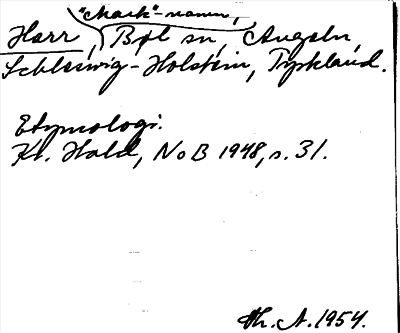 "Mark"-namn,
Harr, Bøl sn, Angeln,
Schleswig-Holstein, Tyskland.
Etymologi.
Kr. Hald, NoB 1948, s. 31.
Th. A. 1954.